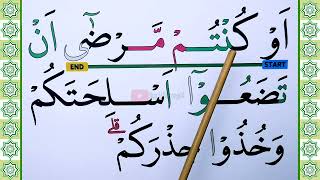 اَوْ كُنْتُمْ مَّرْضٰٓى اَنْ
END START
تَضَعُوْٓا اَسْلِحَتَكُمْ
وَخُذُوْا حِذْرَكُمْ ؕ قلے